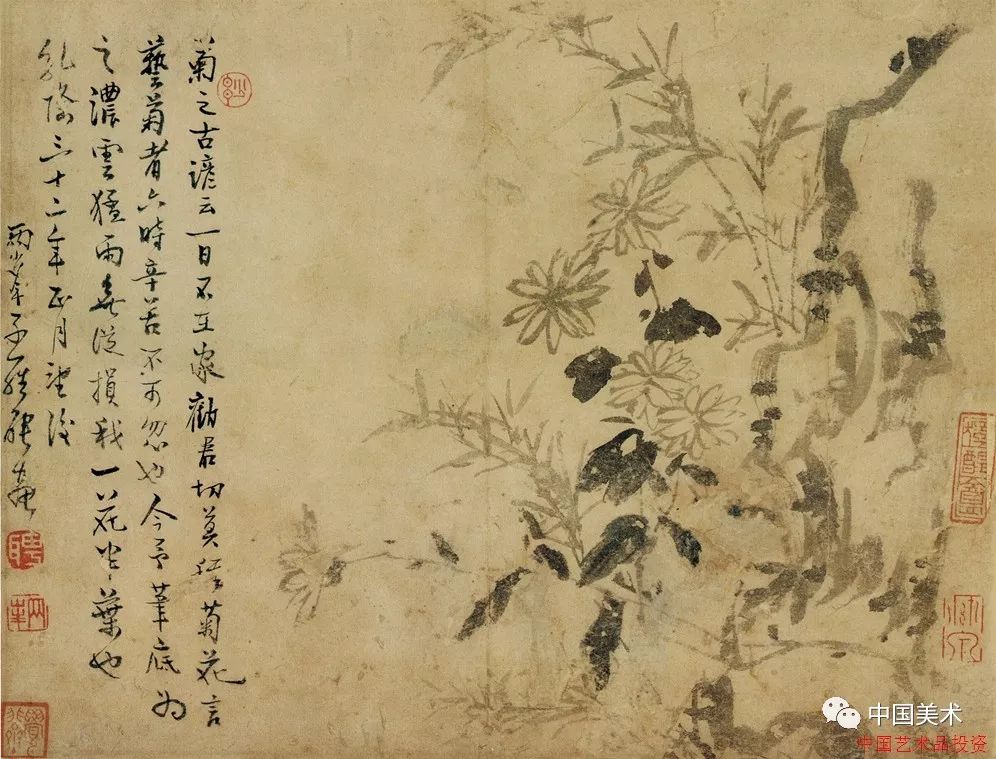 菊之古諺云一日不在家勸君切莫種菊花言
藝菊者六時辛苦不可忽也今予筆底為
之濃雲猛雨無從損我一花半葉也
乾隆三十二年正月望後
兩峯子羅聘
聘
中国美术
中国艺术品投资